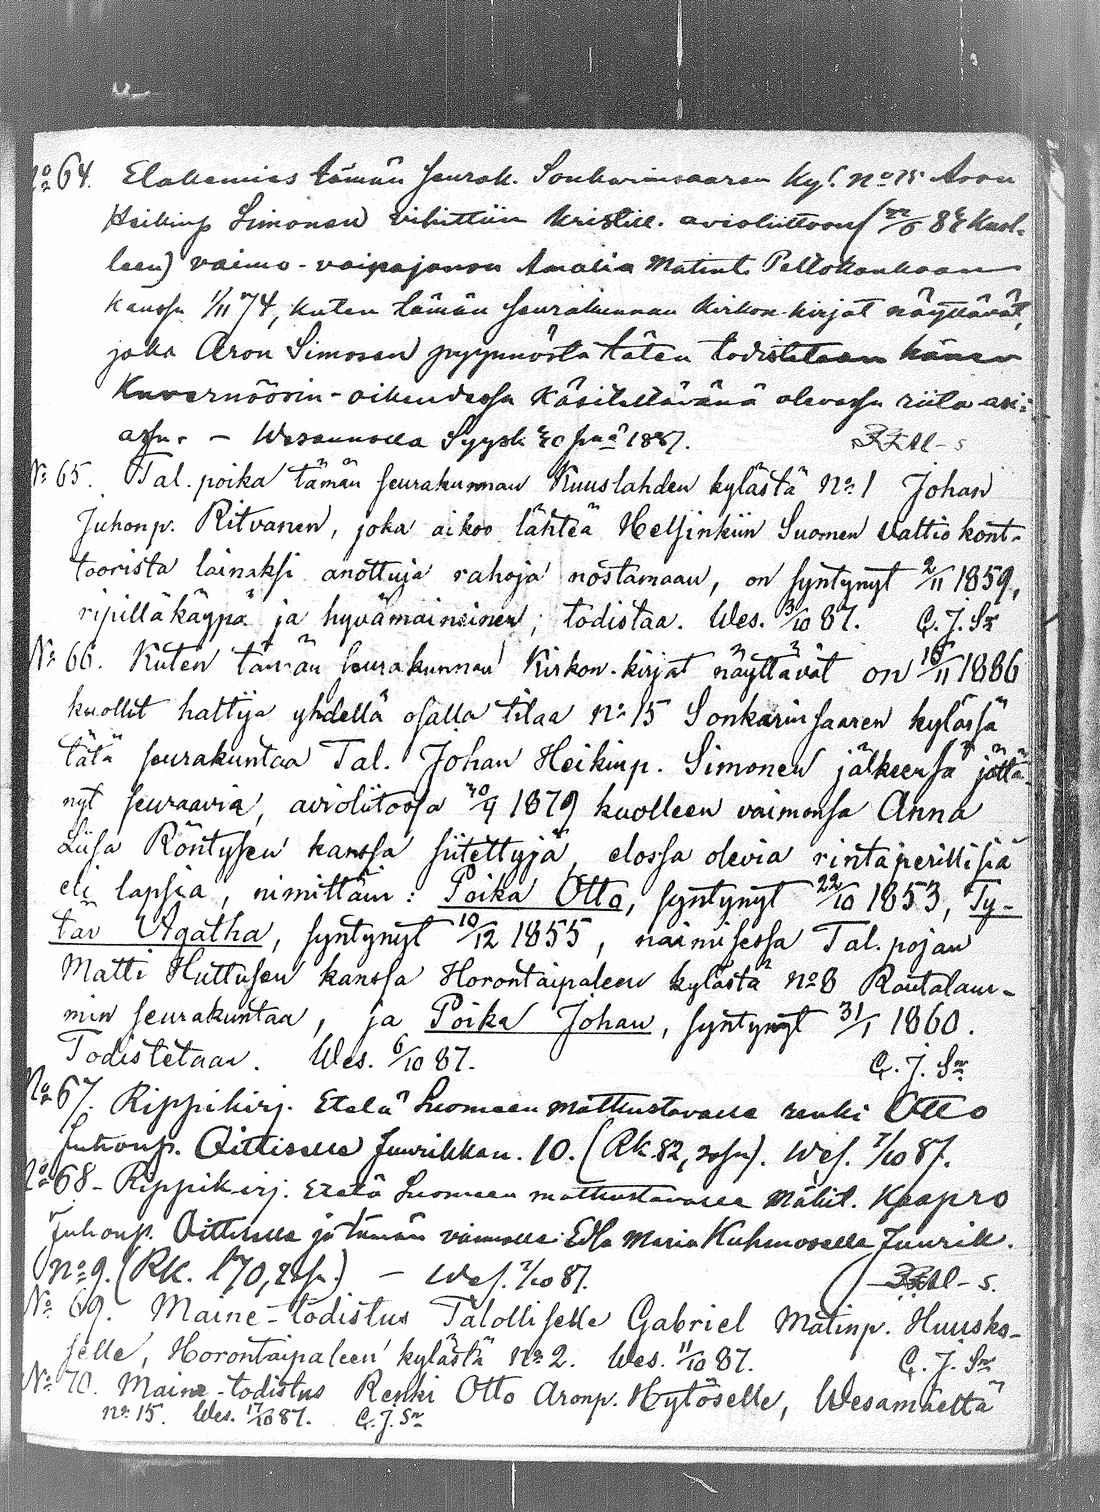 No 64. Elakemies tämän seurak. Sonkarinsaaren kyl. No 15 Aron
Heikinp. Simonen vihittiin kristill. avioliittoon (22/5 86 kuol-
leen) vaimo-vainajansa Amalia Matint. Peltokankaan
kanssa 1/11 74, kuten tämän seurakunnan kirkon-kirjat näyttävät,
joka Aron Simosen pyynnöstä täten todistetaan hänen
Kuvernöörin-oikeudessa käsiteltävänä olevassa riita-asi-
assa. – Wesannolla Syysk. 30 pnä 1887.
No 65. Tal. poika tämän seurakunnan Kuuslahden kylästä No 1 Johan
Juhonp. Ritvanen, joka aikoo lähteä Helsinkiin Suomen Valtiokont-
toorista lainaksi anottuja rahoja nostamaan, on syntynyt 2/11 1859,
ripilläkäypä ja hyvämaineinen; todistaa. Wes. 3/10 87. C. J. Sn
No 66. Kuten tämän seurakunnan Kirkon-kirjat näyttävät on 18/11 1886
kuollit haltija yhdellä osalla tilaa No 15 Sonkarinsaaren kylässä
tätä seurakuntaa Tal. Johan Heikinp. Simonen jälkeensä jättä-
nyt seuraavia, avioliitossa 30/9 1879 kuolleen vaimonsa Anna
Liisa Röntysen kanssa siitettyjä, elossa olevia rintaperillisiä
eli lapsia, nimittäin: Poika Otto, syntynyt 22/10 1853, Ty-
tär Agatha, syntynyt 10/12 1855, naimisessa Tal. pojan
Matti Huttusen kanssa Horontaipaleen kylästä No 8 Rautalam-
min seurakuntaa, ja Poika Johan, syntynyt 31/1 1860.
Todistetaan. Wes. 6/10 87. C. J. Sn
No 67. Rippikirj. Etelä Suomeen matkustavalle renki Otto
Juhonp. Oittiselle Juurikkan. 10. (Rk. 82, ). Wes. 7/10 87.
No 68. Rippikirj. Etelä Suomeen matkustavalle Mäkit. Kaapro
Juhonp. Oittiselle ja tämän vaimolle Edla Maria Kuhmoselle Juurik.
No 9. (RK. 170, ) – Wes. 7/10 87.
No 69. Maine-todistus Talolliselle Gabriel Matinp. Huusko-
selle, Horontaipaleen kylästä No 2. Wes. 11/10 87. C. J. Sn
No 70. Maine-todistus Renki Otto Aronp. Hytöselle, Wesamäeltä
No 15. Wes. 17/10 87. C. J. Sn